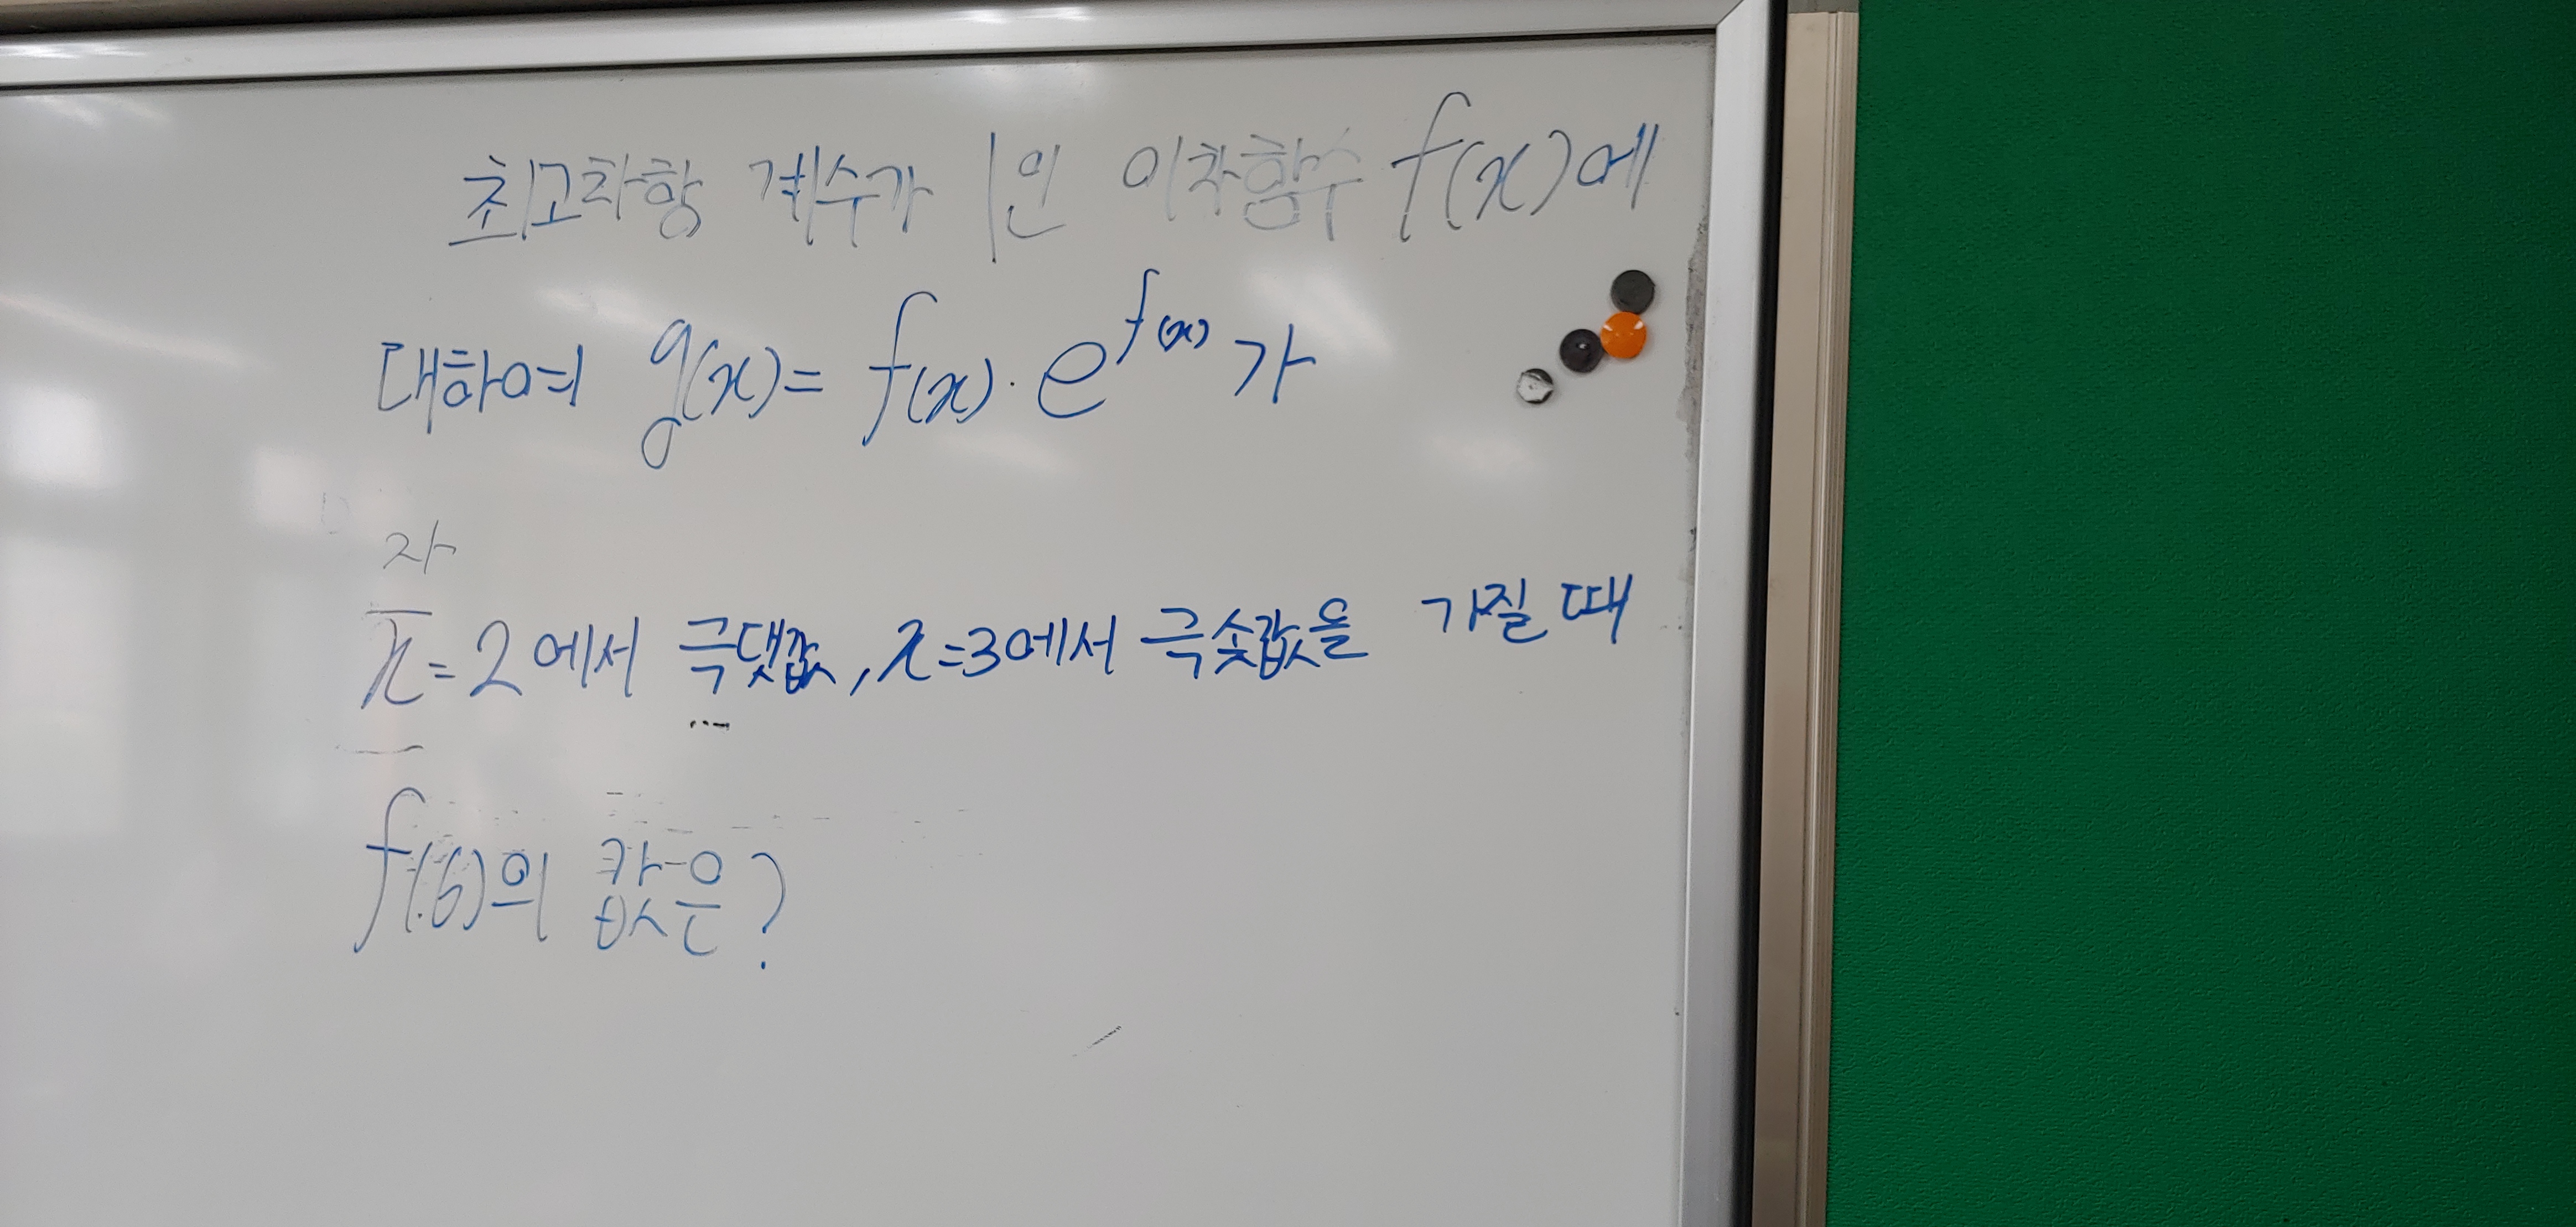 최고차항 계수가 1인 이차함수 f(x)에
대하여 g(x)= f(x)·e^f(x) 가
자
x=2에서 극댓값, x=3에서 극솟값을 가질 때
f(6)의 값은?